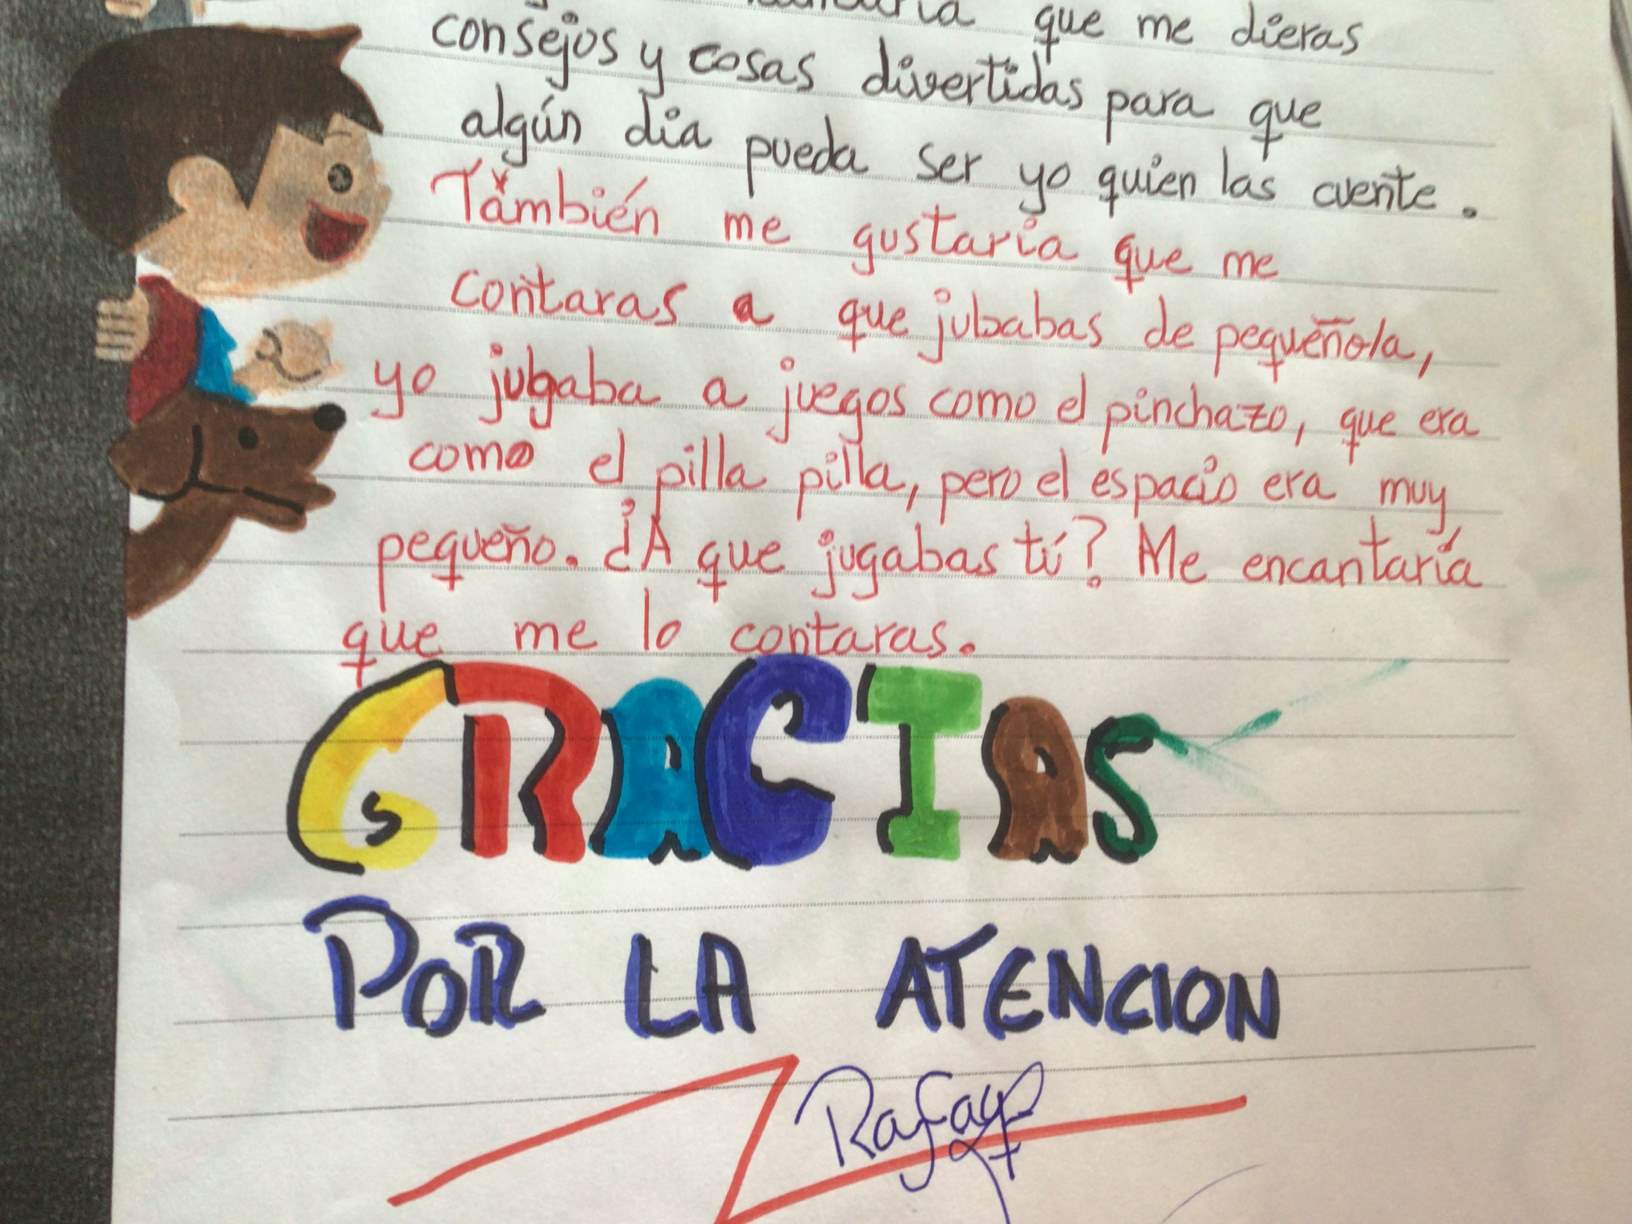 que me dieras
consejos y cosas divertidas para que
algún día pueda ser yo quien las cuente.
También me gustaría que me
contaras a que jubabas de pequeño/a,
yo jugaba a juegos como el pinchazo, que era
como el pilla pilla, pero el espacio era muy
pequeño. ¿A que jugabas tú? Me encantaría
que me lo contaras.
GRACIAS
POR LA ATENCION